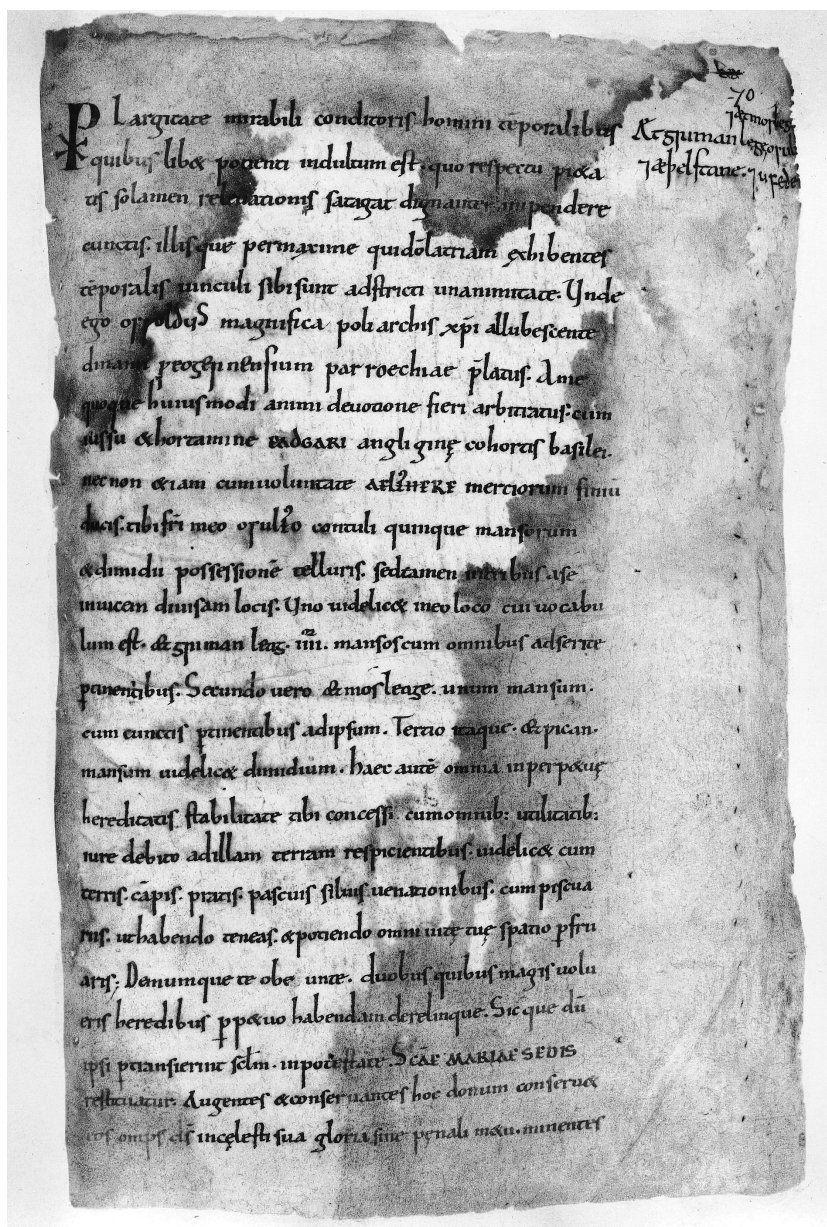 P Largitate mirabili conditoris homini tēporalibus
quibus lib& potienti indultum est. quo respectu pi&a
tis solamen releuationis satagat dignanter inpendere
cunctis. illisque permaxime qui dōlatriam exhibentes
tēporalis uinculi sibi sunt adstricti unanimitate. Unde
ego osuuolduS magnifica poliarchis xp̄i allubescente
parroechiae p̄latus. Ame
quoque huiusmodi animi deuotione fieri arbitratus: cum
iussu & hortamine EADGARI angligine cohortis basilei.
necnon &iam cum uoluntate AELFHERE merciorum finiū
ducis. tibi fr̄i meo osulfo contuli quinque mansorum
& dimidii possessionē telluris. sed tamen in tribus a se
inuicem diuisam locis. Uno uidelic& meo loco cui uocabu
lum est. æt grimanleag. iiii. mansos cum omnibus ad se rite
ptinentibus. Secundo uero æt mosleage. unum mansum.
cum cunctis ptinentibus ad ipsum. Tertio itaque. æt pican.
mansum uidelic& dimidium. haec autē omnia in perp&uę
hereditatis stabilitate tibi concessi. cum omnib: utilitatib:
iure debito ad illam terram respicientibus. uidelic& cum
terris. cāpis. pratis. pascuis siluis. uenationibus. cum piscua
riis. ut habendo teneas. & potiendo omni uitę tuę spatio pfru
aris; Denumque te obe unte. duobus quibus magis uolu
eris heredibus pp&uo habendam derelinque. Sicque dū
ipsi ptransierint in potestate ScAE MARIAE SEDIS
restituatur. Augentes & conseruantes hoc donum conseru&
eos omps d̄s in cęlesti sua gloria sine pęnali m&u. minentes
70
Æt griman
⁊ æt mosleg
leage
⁊ æþelstane.